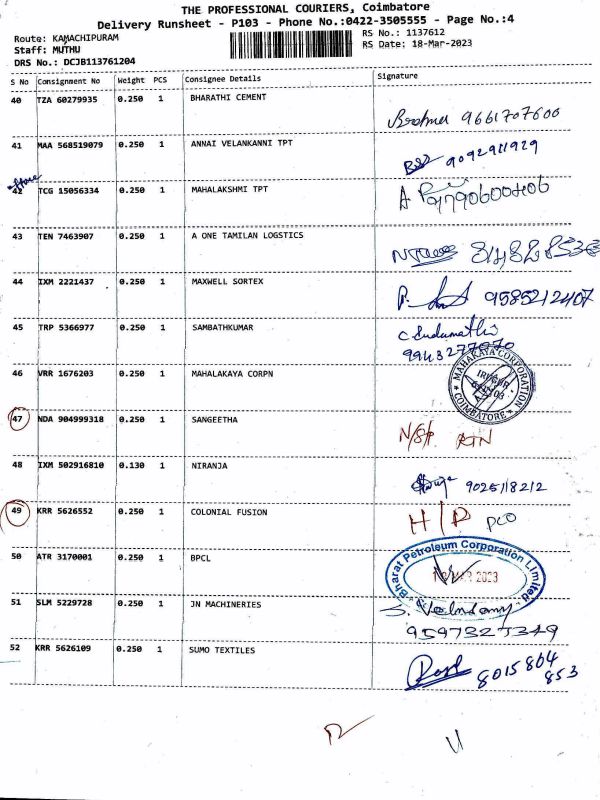 THE PROFESSIONAL COURIERS, Coimbatore
Delivery Runsheet - P103 - Phone No.:0422-3505555 - Page No.:4
Route: KAMACHIPURAM
RS No.: 1137612
Staff: MUTHU
RS Date: 18-Mar-2023
DRS No.: DCJB113761204
S No Consignment No Weight PCS Consignee Details Signature
40 TZA 60279935 0.250 1 BHARATHI CEMENT
9661707600
41 MAA 568519079 0.250 1 ANNAI VELANKANNI TPT
9092911929
42 TCG 15056334 0.250 1 MAHALAKSHMI TPT
43 TEN 7463907 0.250 1 A ONE TAMILAN LOGSTICS
44 IXM 2221437 0.250 1 MAXWELL SORTEX
9585212407
45 TRP 5366977 0.250 1 SAMBATHKUMAR
C Indumathi
9943277070
46 VRR 1676203 0.250 1 MAHALAKAYA CORPN
MAHAKAYA CORPORATION
COIMBATORE
47 NDA 904999318 0.250 1 SANGEETHA
48 IXM 502916810 0.130 1 NIRANJA
9025118212
49 KRR 5626552 0.250 1 COLONIAL FUSION
H/P PCO
50 ATR 3170001 0.250 1 BPCL
Bharat Petroleum Corporation Limited
51 SLM 5229728 0.250 1 JN MACHINERIES
9597325349
52 KRR 5626109 0.250 1 SUMO TEXTILES
8015864
853